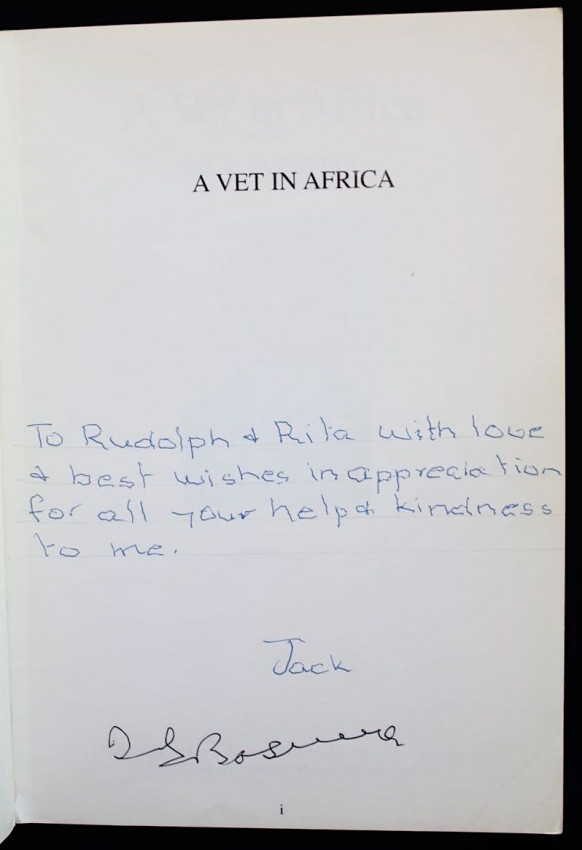 A VET IN AFRICA
To Rudolph & Rita with love
& best wishes in appreciation
for all your help & kindness
to me.
Jack
i